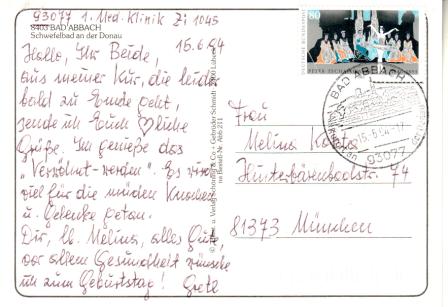 93077 1. Med. Klinik Zi 1045
8403 BAD ABBACH
Schwefelbad an der Donau
15.6.94
Hallo, Ihr Beide,
aus meiner Kur, die leider
bald zu Ende geht,
sende ich Euch ♡liche
Grüße. Ich genieße das
"Verwöhnt-werden". Es wird
viel für die müden Knochen
u. Gelenke getan.
Dir, lb. Melina, alles Gute,
vor allem Gesundheit wünsche
ich zum Geburtstag! Gretl
80
DEUTSCHE BUNDESPOST
BAD ABBACH
15.6.94-17
93077
Frau
Melina
Hinterbärenbadstr. 74
81373 München